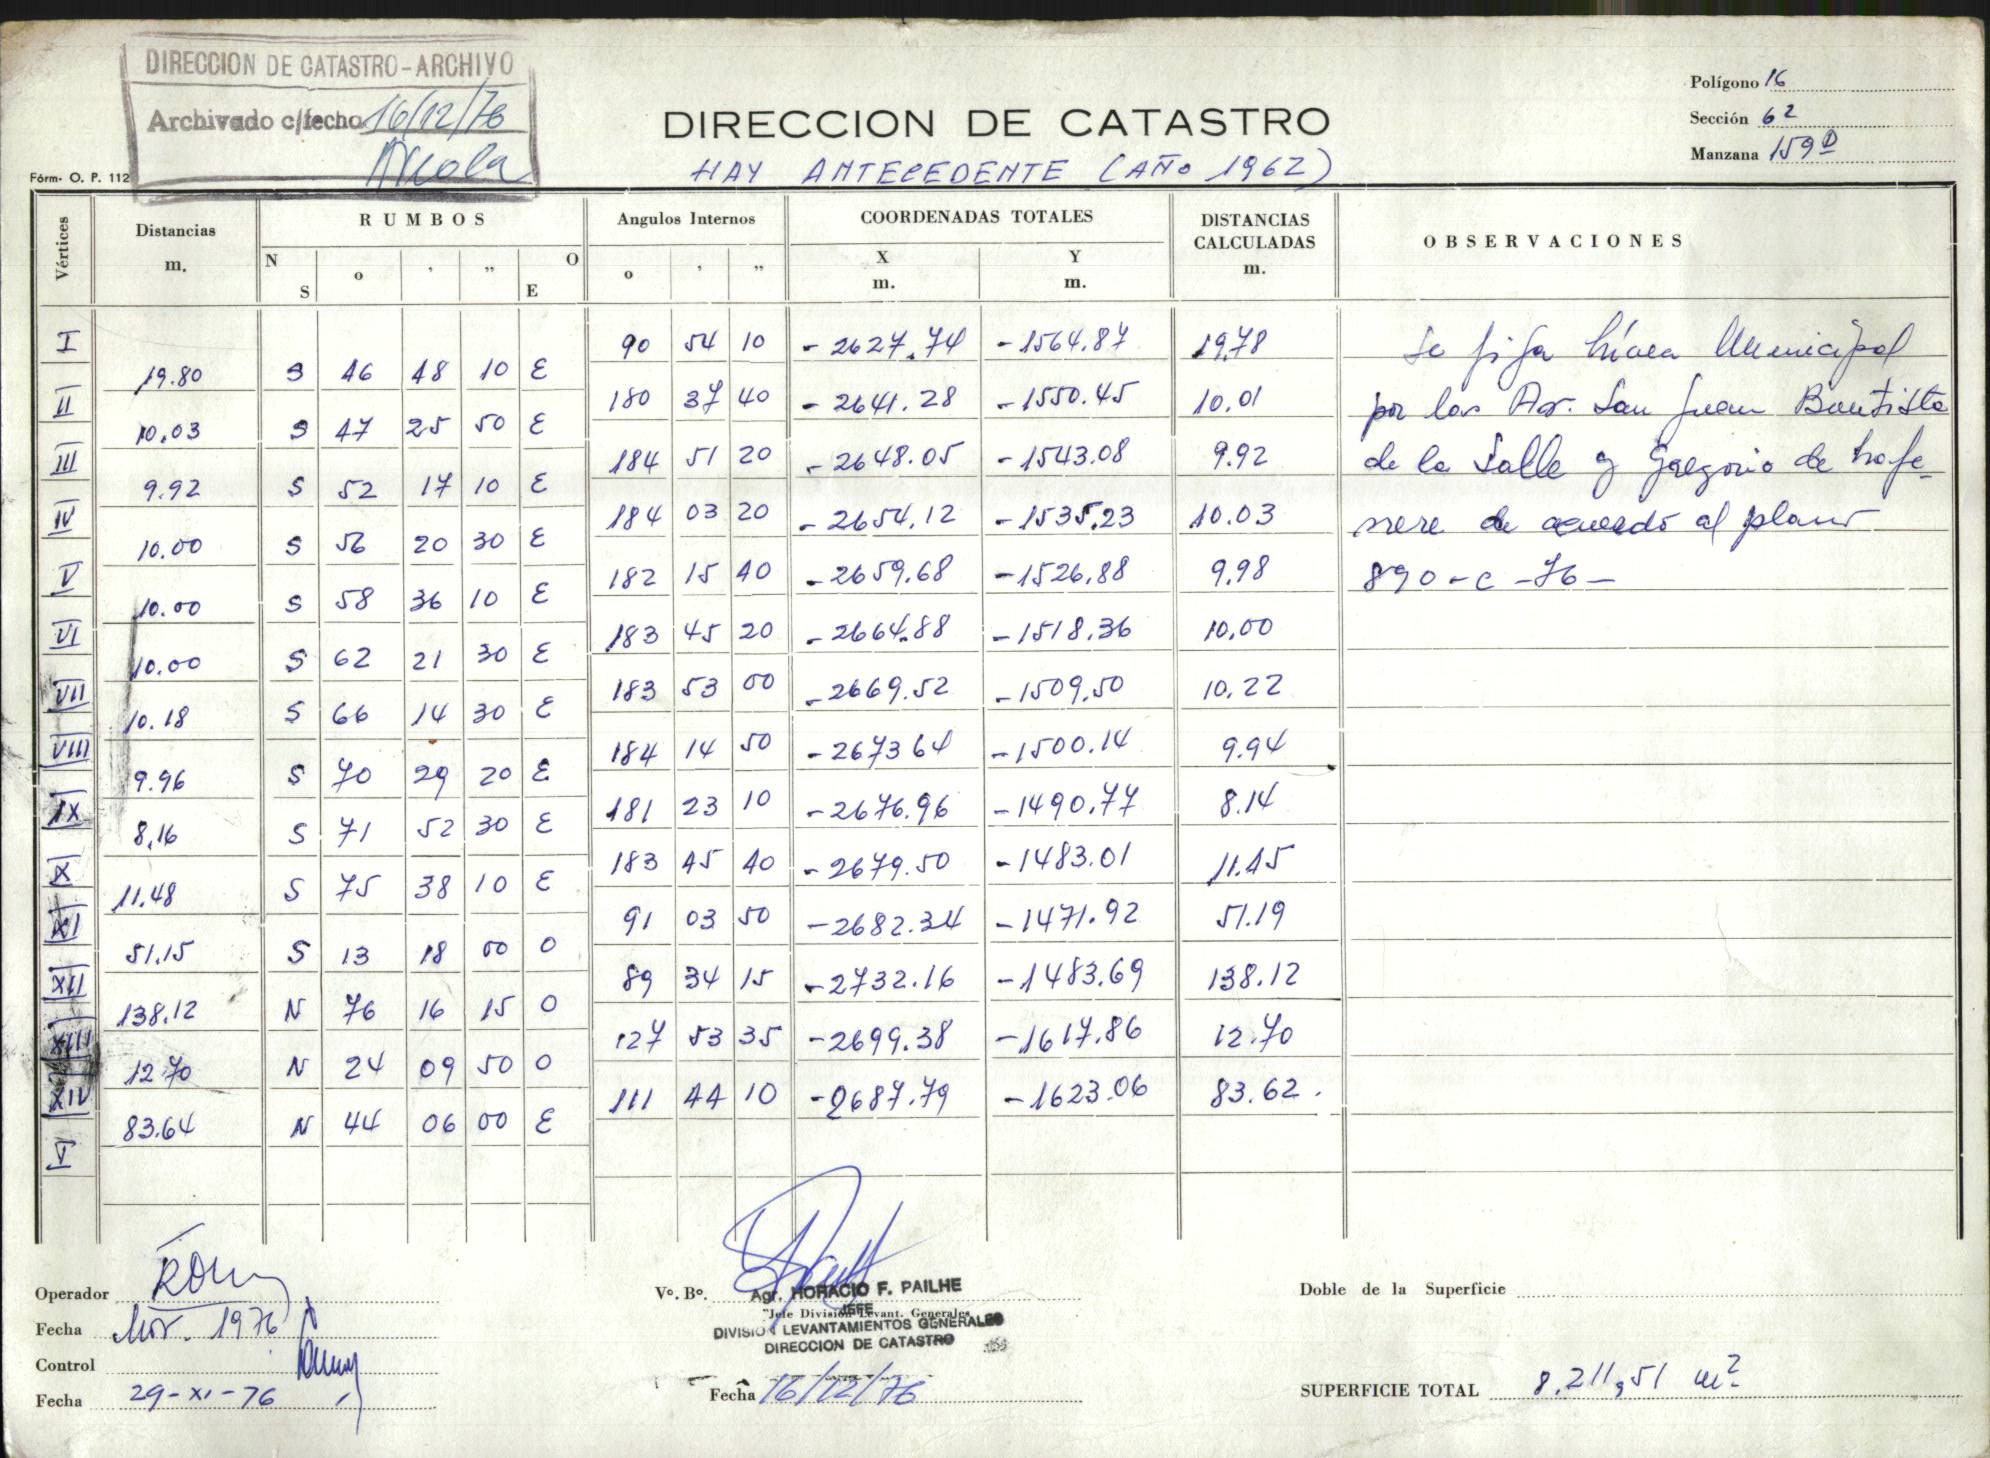 DIRECCION DE CATASTRO-ARCHIVO
Archivado c/fecho 16/12/76
Polígono 16
Sección 62
Manzana 159D
DIRECCION DE CATASTRO
HAY ANTECEDENTE (AÑO 1962)
Fórm. O. P. 112
Vértices Distancias m. RUMBOS N S o ' ,, O E Angulos Internos o ' ,, COORDENADAS TOTALES X m. Y m. DISTANCIAS CALCULADAS m. OBSERVACIONES
I 90 54 10 -2627.74 -1564.87 19.78 Se fija Línea Municipal
19.80 S 46 48 10 E
II 180 37 40 -2641.28 -1550.45 10.01 por las Av. San Juan Bautista
10.03 S 47 25 50 E
III 184 51 20 -2648.05 -1543.08 9.92 de la Salle y Gregorio de Lafe-
9.92 S 52 17 10 E
IV 184 03 20 -2654.12 -1535.23 10.03 rrere de acuerdo al plano
10.00 S 56 20 30 E
V 182 15 40 -2659.68 -1526.88 9.98 890-C-76-
10.00 S 58 36 10 E
VI 183 45 20 -2664.88 -1518.36 10.00
10.00 S 62 21 30 E
VII 183 53 00 -2669.52 -1509.50 10.22
10.18 S 66 14 30 E
VIII 184 14 50 -2673 64 -1500.14 9.94
9.96 S 70 29 20 E
IX 181 23 10 -2676.96 -1490.77 8.14
8.16 S 71 52 30 E
X 183 45 40 -2679.50 -1483.01 11.45
11.48 S 75 38 10 E
XI 91 03 50 -2682.34 -1471.92 51.19
51.15 S 13 18 00 O
XII 89 34 15 -2732.16 -1483.69 138.12
138.12 N 76 16 15 O
XIII 127 53 35 -2699.38 -1617.86 12.70
12 70 N 24 09 50 O
XIV 111 44 10 -2687.79 -1623.06 83.62.
83.64 N 44 06 00 E
V
Operador
Fecha Nov. 1976
Control
Fecha 29-XI-76
Vº. Bº.
Agr. HORACIO F. PAILHE
JEFE
"Jefe División Levant. Generales
DIVISION LEVANTAMIENTOS GENERALES
DIRECCION DE CATASTRO
Fecha 16/12/76
Doble de la Superficie
SUPERFICIE TOTAL 8.211,51 m2